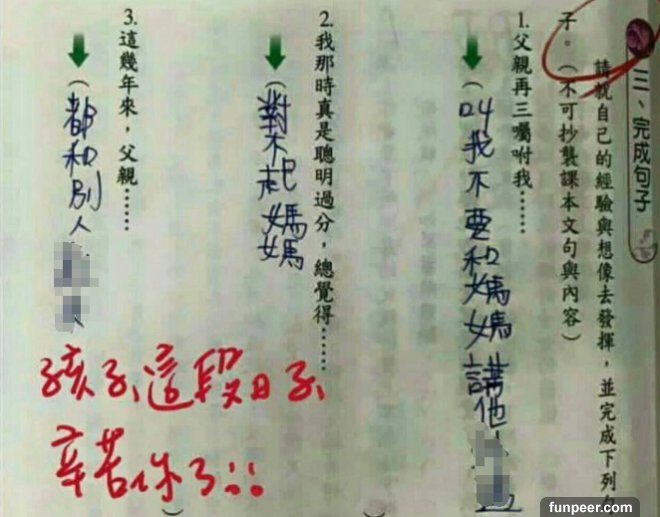 三、完成句子
請就自己的經驗與想像去發揮，並完成下列句
子。（不可抄襲課本文句與內容）
1.父親再三囑咐我……
（叫我不要和媽媽講他
2.我那時真是聰明過分，總覺得……
（對不起媽媽
）
3.這幾年來，父親……
（都和別人
）
孩子，這段日子
辛苦你了!!
funpeer.com